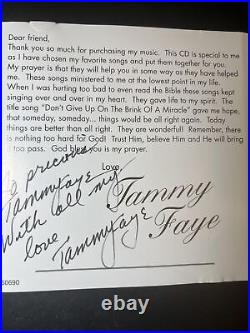 Dear friend,
Thank you so much for purchasing my music. This CD is special to me
as I have chosen my favorite songs and put them together for you.
My prayer is that they will help you in some way as they have helped
me. These songs ministered to me at the lowest point in my life.
When I was hurting too bad to even read the Bible these songs kept
singing over and over in my heart. They gave life to my spirit. The
title song "Don't Give Up On The Brink Of A Miracle" gave me hope,
that someday, someday... things would be all right again. Today
things are better than all right. They are wonderful! Remember, there
is nothing too hard for God! Trust Him, believe Him and He will bring
it too pass. God bless you is my prayer.
Love,
Tammy
Faye
To precious
Tammyfaye
With all my
love
Tammyfaye
60690